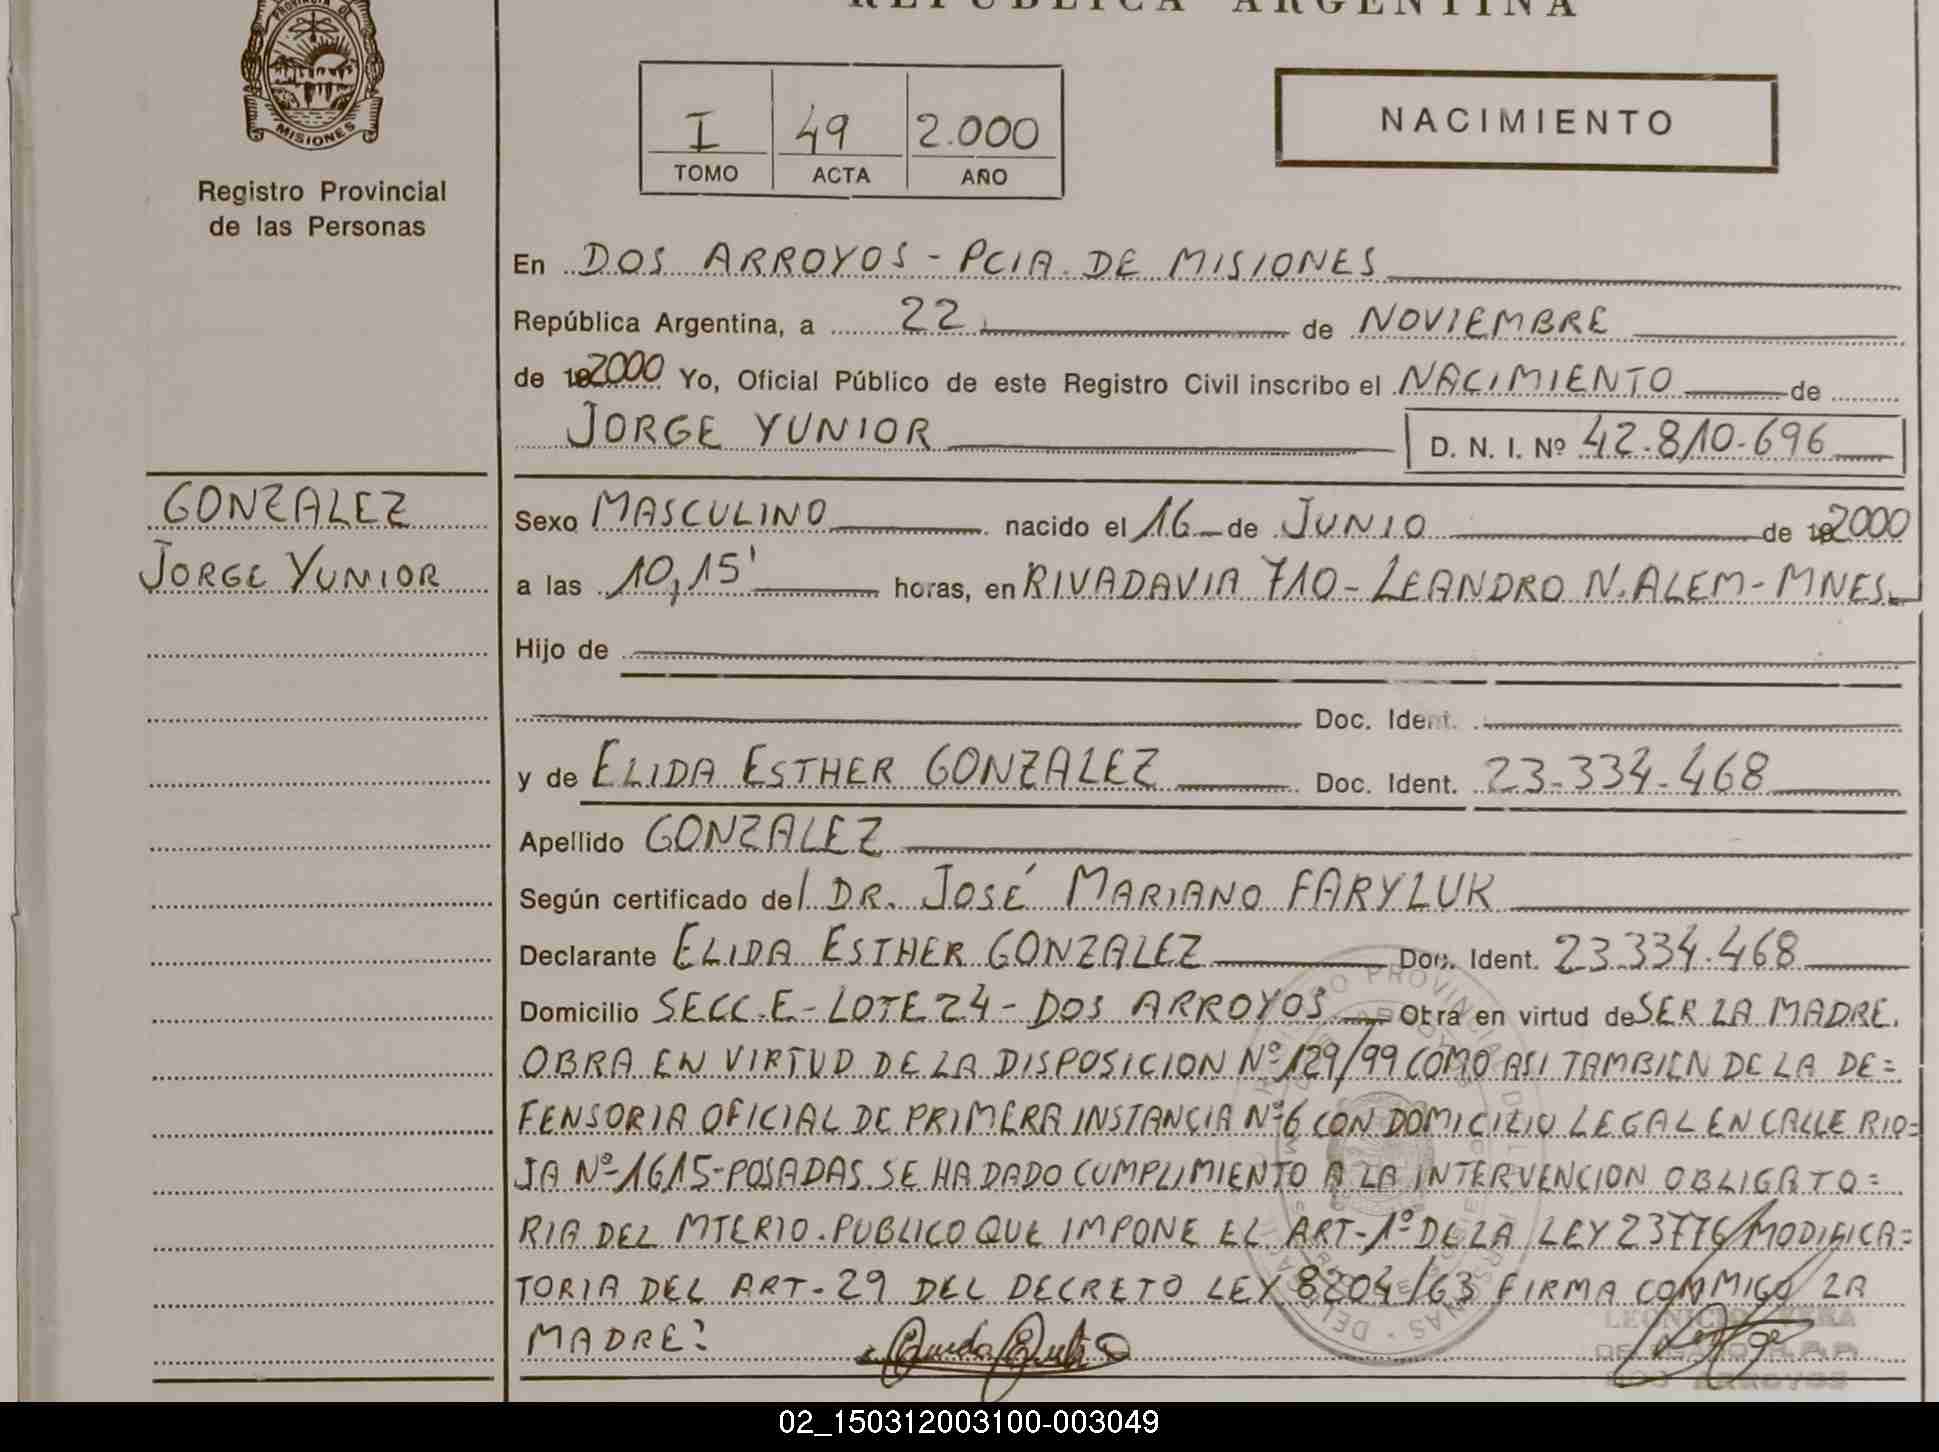 REPUBLICA ARGENTINA
PROVINCIA DE
MISIONES
Registro Provincial
de las Personas
I 49 2.000
TOMO ACTA AÑO
NACIMIENTO
En DOS ARROYOS - PCIA. DE MISIONES
República Argentina, a 22 de NOVIEMBRE
de 2000 Yo, Oficial Público de este Registro Civil inscribo el NACIMIENTO de
JORGE YUNIOR D. N. I. Nº 42.810.696
GONZALEZ
JORGE YUNIOR
Sexo MASCULINO nacido el 16 de JUNIO de 2000
a las 10,15' horas, en RIVADAVIA 710 - LEANDRO N. ALEM - MNES.
Hijo de
Doc. Ident.
y de ELIDA ESTHER GONZALEZ Doc. Ident. 23.334.468
Apellido GONZALEZ
Según certificado del DR. JOSÉ MARIANO FARYLUK
Declarante ELIDA ESTHER GONZALEZ Doc. Ident. 23.334.468
Domicilio SECC. E - LOTE 24 - DOS ARROYOS Obra en virtud de SER LA MADRE.
OBRA EN VIRTUD DE LA DISPOSICION Nº 129/99 COMO ASI TAMBIEN DE LA DE=
FENSORIA OFICIAL DE PRIMERA INSTANCIA Nº 6 CON DOMICILIO LEGAL EN CALLE RIO=
JA Nº 1615 - POSADAS. SE HA DADO CUMPLIMIENTO A LA INTERVENCION OBLIGATO=
RIA DEL MTERIO. PUBLICO QUE IMPONE EL ART - 1º DE LA LEY 23776 MODIFICA=
TORIA DEL ART - 29 DEL DECRETO LEY 8204/63 FIRMA CONMIGO LA
MADRE:
DOS ARROYOS
02_150312003100-003049